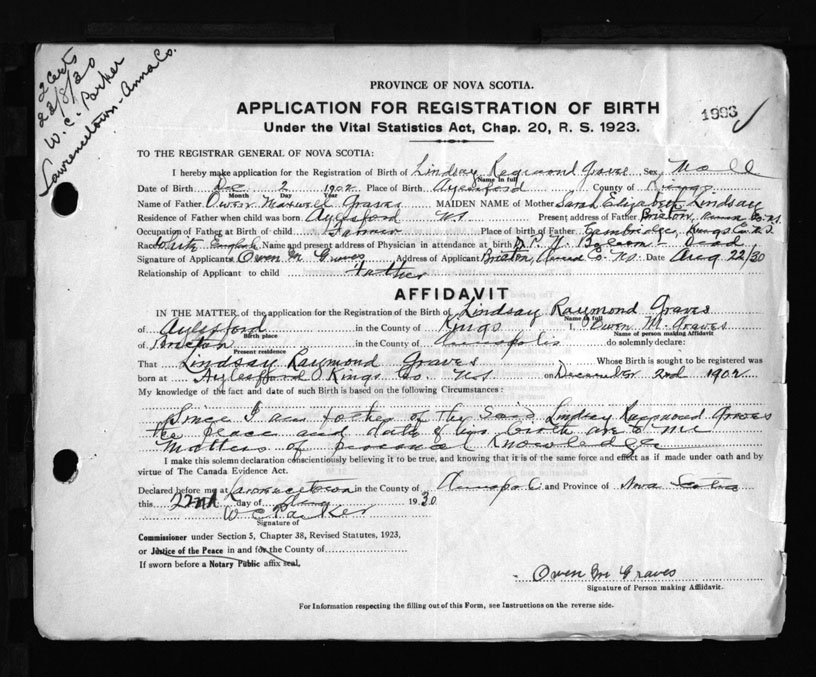 2 Certs
22/8/30
W. C. Parker
Lawrencetown - Anna Co.
PROVINCE OF NOVA SCOTIA.
APPLICATION FOR REGISTRATION OF BIRTH
Under the Vital Statistics Act, Chap. 20, R. S. 1923.
TO THE REGISTRAR GENERAL OF NOVA SCOTIA:
I hereby make application for the Registration of Birth of Lindsay Raymond Graves Sex
Name in full
Date of Birth Dec 2 1902 Place of Birth Aylesford County of Kings
Month Day Year
Name of Father Owen Maxwell Graves MAIDEN NAME of Mother Sarah Elizabeth Lindsay
Residence of Father when child was born Aylesford NS Present address of Father Brickton, Co. N.S.
Occupation of Father at Birth of child Farmer Place of birth of Father Cambridge, Kings Co. N.S.
Race White English Name and present address of Physician in attendance at birth Dead
Signature of Applicant Owen M Graves Address of Applicant Brickton, Co. NS. Date Aug 22/30
Relationship of Applicant to child Father
AFFIDAVIT
IN THE MATTER, of the application for the Registration of the Birth of Lindsay Raymond Graves
Name in full
of Aylesford in the County of Kings I, Owen M. Graves
Birth place Name of person making Affidavit
of Brickton in the County of Annapolis do solemnly declare:
Present residence
That Lindsay Raymond Graves Whose Birth is sought to be registered was
born at Aylesford Kings Co. NS on December 2nd 1902
My knowledge of the fact and date of such Birth is based on the following Circumstances:
Since I am father of the said Lindsay Raymond Graves
the place and date of his birth are to me
matters of personal knowledge
I make this solemn declaration conscientiously believing it to be true, and knowing that it is of the same force and effect as if made under oath and by
virtue of The Canada Evidence Act.
Declared before me at Lawrencetown in the County of and Province of Nova Scotia
this 22nd day of Aug 1930
W C Parker
Signature of
Commissioner under Section 5, Chapter 38, Revised Statutes, 1923,
or Justice of the Peace in and for the County of
If sworn before a Notary Public affix seal.
Owen M Graves
Signature of Person making Affidavit.
For Information respecting the filling out of this Form, see Instructions on the reverse side.